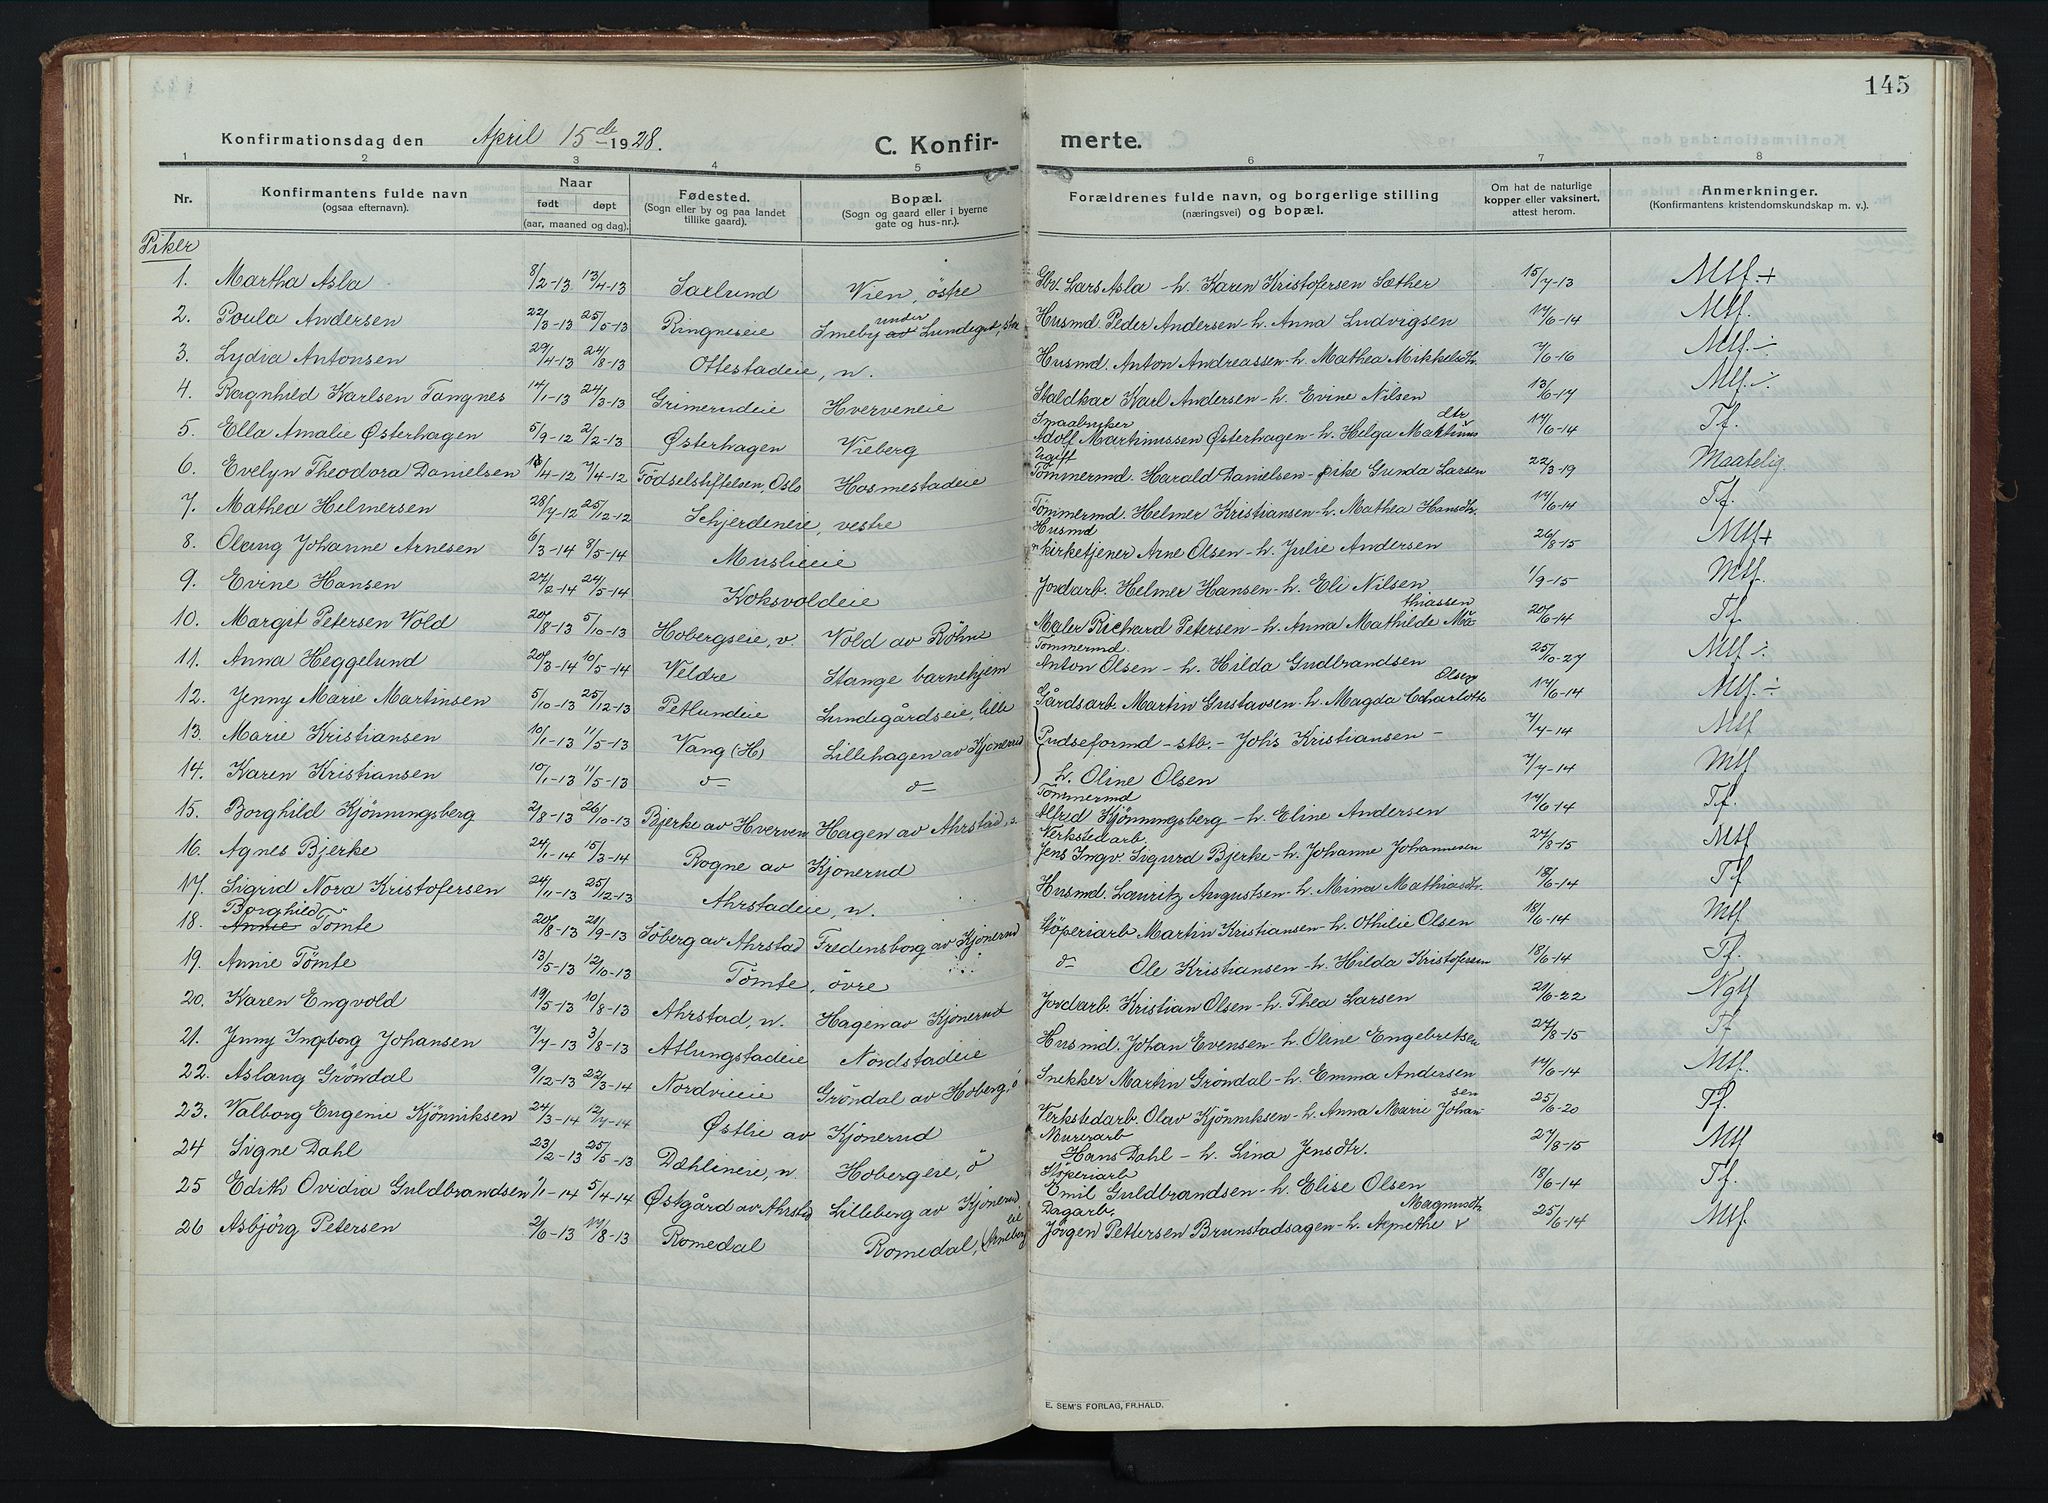 145
Konfirmationsdag den April 15de 1928.
C. Konfirmerte.
1 2 3 4 5 6 7 8
Nr. | Konfirmantens fulde navn (ogsaa efternavn). | Naar født døpt (aar, maaned og dag). | Fødested. (Sogn eller by og paa landet tillike gaard). | Bopæl. (Sogn og gaard eller i byerne gate og hus-nr.). | Forældrenes fulde navn, og borgerlige stilling (næringsvei) og bopæl. | Om hat de naturlige kopper eller vaksinert, attest herom. | Anmerkninger. (Konfirmantens kristendomskundskap m. v.).
Piker
1. Martha Asla 8/2-13 13/4-13 Saxlund Vien, östre Gbr. Lars Asla - h. Karen Kristofersen Sæther 15/7-13 Mtf. +
2. Poula Andersen 22/3-13 25/5-13 Ringneseie Smeby av under Lundegrd, stor Husmd. Peder Andersen - h. Anna Ludvigsen 17/6-14 Mtf.
3. Lydia Antonsen 29/4-13 24/8-13 Ottestadeie, n. Husmd. Anton Andreassen - h. Mathea Mikkelsdtr. 7/6-16 Mtf. ÷
4. Ragnhild Karlsen Tangnes 14/1-13 24/3-13 Grimerudeie Hverveneie Staldkar Karl Andersen - h. Evine Nilsen 13/6-17 Mtf. ÷
5. Ella Amalie Østerhagen 5/9-12 2/2-13 Østerhagen Vieberg Smaabruker Adolf Martinussen Østerhagen - h. Helga Martinusdtr 17/6-14 Tf.
6. Evelyn Theodora Danielsen 1/4-12 7/4-12 Födselstiftelsen, Oslo Hosmestadeie Ugift Tömmermd. Harald Danielsen - pike Gunda Larsen 22/3-19 Maatelig.
7. Mathea Helmersen 28/7-12 25/12-12 Schjerdeneie, vestre Tömmermd. Helmer Kristiansen - h. Mathea Hansdtr. 17/6-14 Tf.
8. Olaug Johanne Arnesen 6/3-14 8/5-14 Muslieie Husmd n kirketjener Arne Olsen - h. Julie Andersen 26/8-15 Mtf +
9. Evine Hansen 27/2-14 24/5-14 Koksvoldeie Jordarb. Helmer Hansen - h. Eli Nilsen 1/9-15 Mtf.
10. Margit Petersen Vold 20/8-13 5/10-13 Hobergseie, v. Vold av Röhne Maler Richard Petersen - h. Anna Mathilde Mathiassen 20/6-14 Tf
11. Anna Heggelund 20/3-14 10/5-14 Veldre Stange barnehjem Tömmermd. Anton Olsen - h. Hilda Gudbrandsen 25/10-27 Mtf ÷
12. Jenny Marie Martinsen 5/10-13 25/12-13 Petlundeie Lundegårdseie, lille Gårdsarb. Martin Gustavsen - h. Magda Charlotte Olsen 17/6-14 Mtf. ÷
13. Marie Kristiansen 10/1-13 11/5-13 Vang (H) Lillehagen av Kjonerud Pudseformd - stb. - Johs Kristiansen - 7/7-14 Mtf
14. Karen Kristiansen 10/1-13 11/5-13 d- d- h. Oline Olsen 7/7-14 Mtf
15. Borghild Kjönningsberg 2/8-13 26/10-13 Bjerke av Hverven Hagen av Ahrstad, s. Tömmermd Alfred Kjönningsberg - h. Eline Andersen 17/6-14 Tf.
16. Agnes Bjerke 24/1-14 15/3-14 Rogne av Kjonerud Verkstedarb Jens Ingv. Sigurd Bjerke - h. Johanne Johannesen 27/8-15 Mtf
17. Sigrid Nora Kristofersen 24/11-13 25/12-13 Ahrstadeie, n. Husmd. Lauritz Augustsen - h. Mina Mathiasdtr. 18/6-14 Tf
18. Annie Borghild Tömte 20/8-13 21/9-13 Söberg av Ahrstad Fredensborg av Kjonerud Støperiarb Martin Kristiansen - h. Othilie Olsen 18/6-14 Mtf
19. Annie Tömte 13/5-13 12/10-13 Tömte, övre d- Ole Kristiansen - h. Hilda Kristofersen 18/6-14 Tf.
20. Karen Engvold 19/5-13 10/8-13 Ahrstad, n. Hagen av Kjonerud Jordarb. Kristian Olsen - h. Thea Larsen 21/6-22 Ngtf
21. Jenny Ingeborg Johansen 7/7-13 3/8-13 Atlungstadeie Nordstadeie Husmd. Johan Evensen - h. Oline Engebretsen 27/8-15 Tf
22. Aslaug Gröndal 9/12-13 22/3-14 Nordvieie Gröndal av Hoberg, ö Snekker Martin Gröndal - h. Emma Andersen 17/6-14 Mtf.
23. Valborg Eugenie Kjönniksen 24/3-14 12/7-14 Østlie av Kjonerud Verkstedarb. Olav Kjönniksen - h. Anna Marie Johansen 25/6-20 Tf.
24 Signe Dahl 23/2-13 25/5-13 Dæhlineie, n. Hobergeie, ö Murerarb Hans Dahl - h. Lina Jensdtr. 27/8-15 Mtf
25 Edith Ovidia Guldbrandsen 7/1-14 5/4-14 Østgård av Ahrstad Lilleberg av Kjonerud Støperiarb Emil Guldbrandsen - h. Elise Olsen 18/6-14 Tf.
26 Asbjörg Petersen 2/6-13 17/8-13 Romedal Romedal, (Arneberg Dagarb. Jörgen Pettersen Brunstadsagen - h. Agnethe Magnusdtr 25/6-14 Mtf.
E. SEM'S FORLAG, FR.HALD.